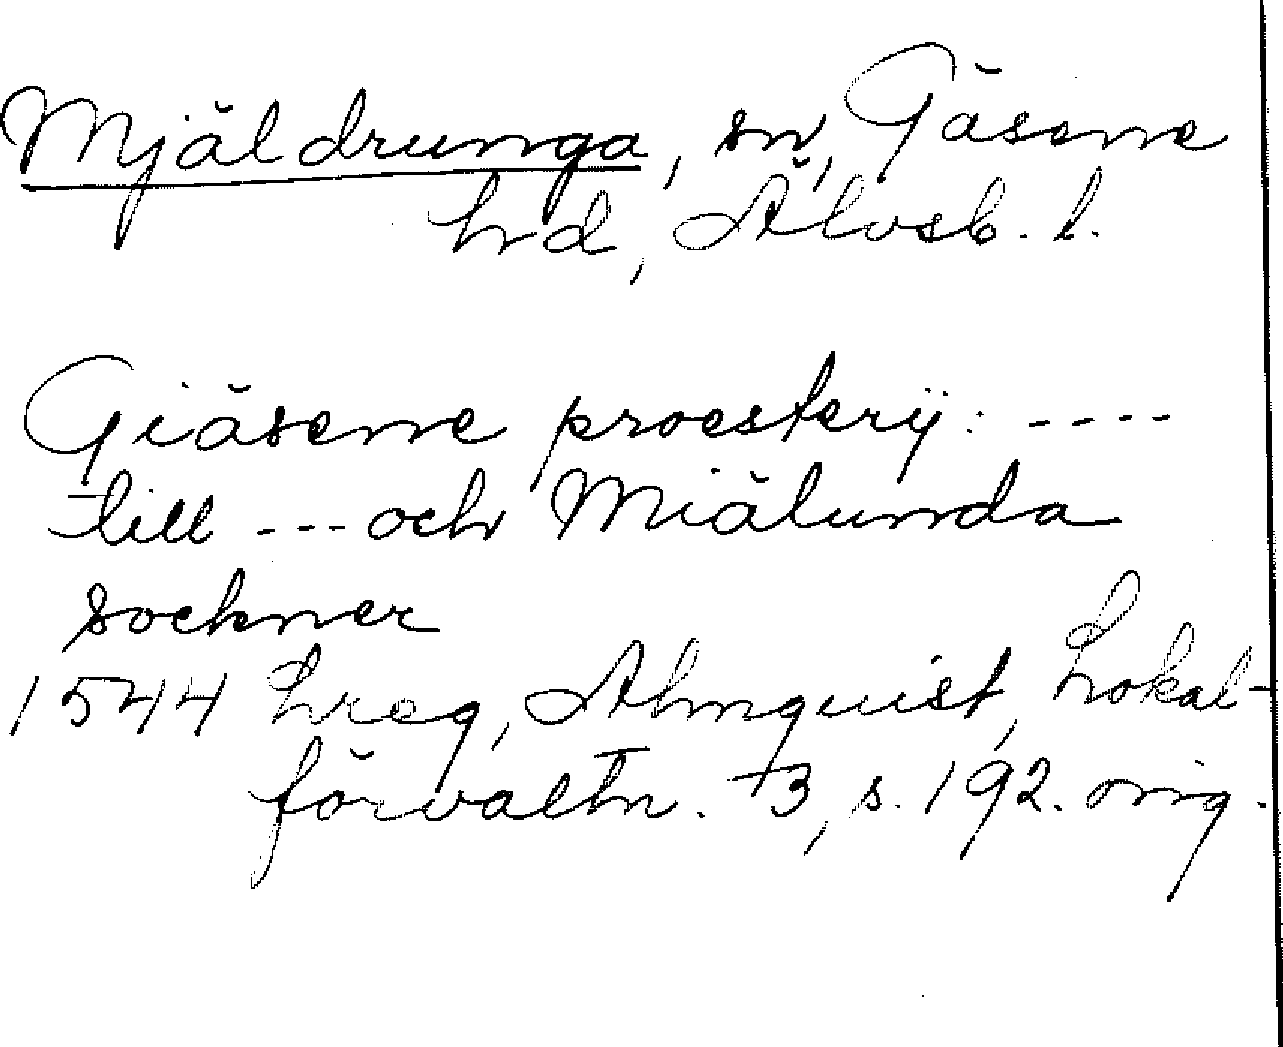 Mjäldrunga, sn, Gäsene
hd, Älvsb. l.
Giäsene proesterij: ----
till --- och Miälunda
sockner
1544 Lreg, Almquist, Lokal-
förvaltn. 3, s. 192. orig.